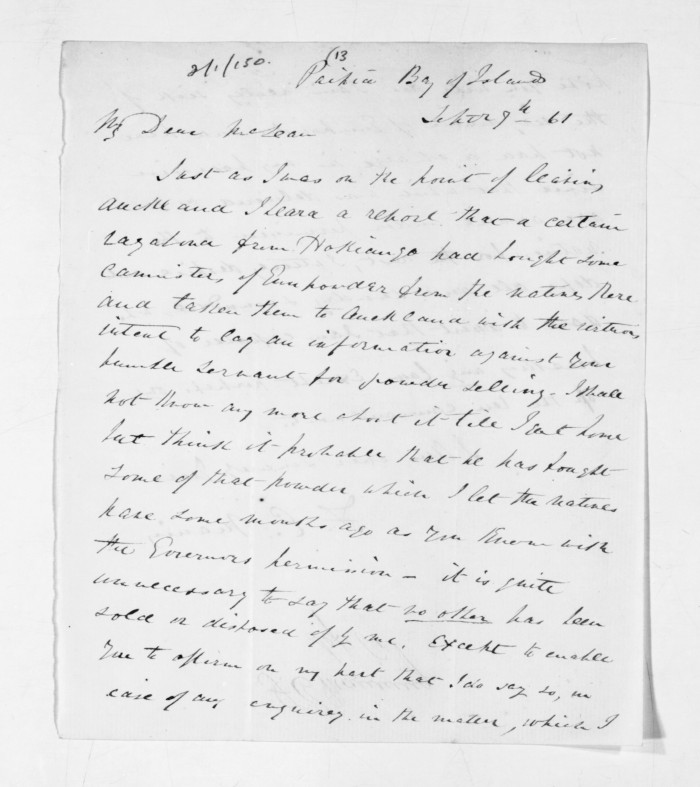 2/1/150. (13
Paihia Bay of Islands
Septr 9th 61
My Dear McLean
Just as I was on the point of leaving
Auckland I heard a report that a certain
vagabond from Hokianga had bought some
cannisters of Gunpowder from the natives there
and taken them to Auckland with the virtuous
intent to lay an information against your
humble servant for powder selling. I shall
not know any more about it till I get home
but think it probable that he has bought
some of that powder which I let the natives
have some months ago as you know with
the Governors permission – it is quite
unnecessary to say that no other has been
sold or disposed of by me. Except to enable
you to affirm on my part that I do say so, in
case of any enquirey in the matter, which I